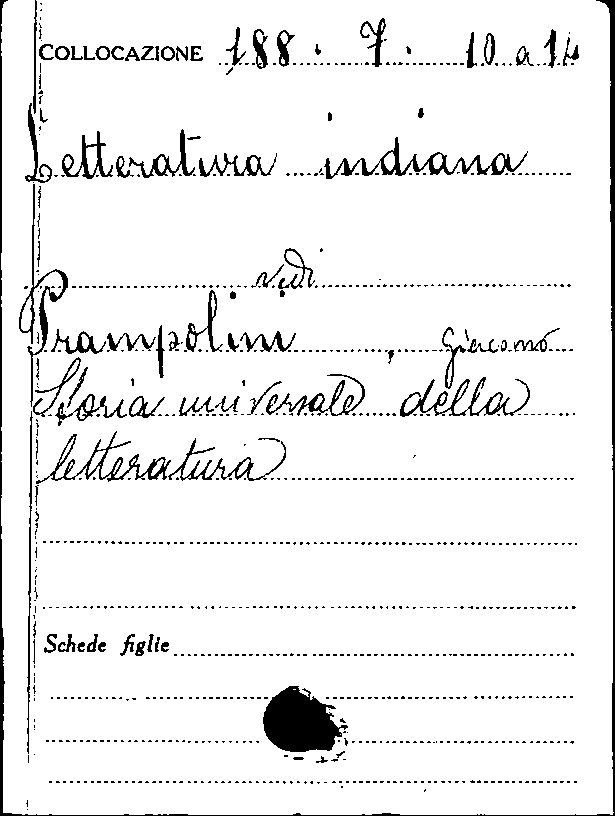 COLLOCAZIONE 188. 7. 10 a 14
Letteratura indiana
vedi
Prampolini, Giacomo
Storia universale della
letteratura
Schede figlie